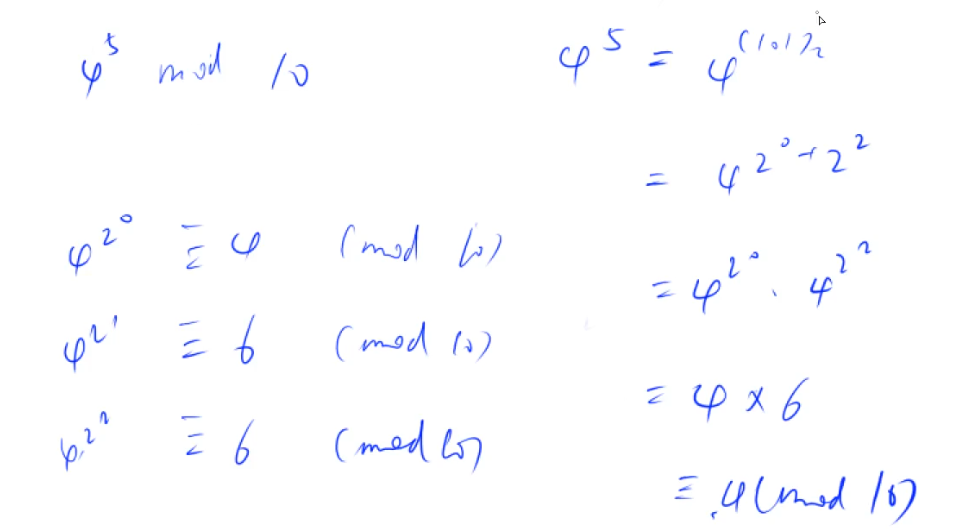 4^5 mod 10
4^{2^0} ≡ 4 (mod 10)
4^{2^1} ≡ 6 (mod 10)
4^{2^2} ≡ 6 (mod 10)
4^5 = 4^{(101)_2}
= 4^{2^0 + 2^2}
= 4^{2^0} · 4^{2^2}
= 4 × 6
≡ 4 (mod 10)